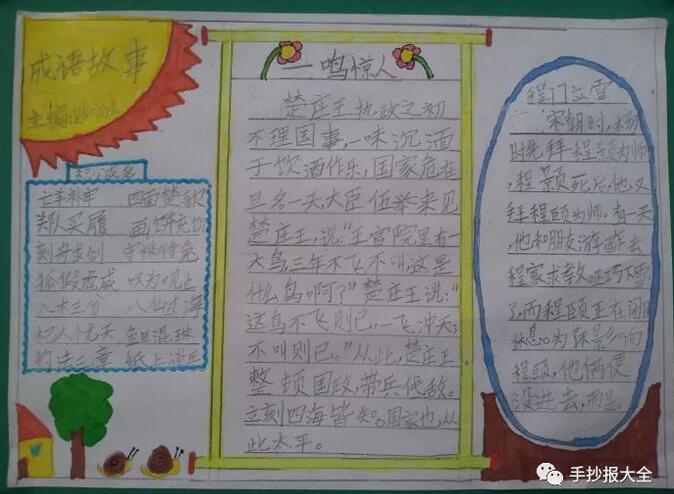 成语故事
主编
积少成多
亡羊补牢 四面楚歌
郑人买履 画饼充饥
刻舟求剑 守株待兔
狐假虎威 叹为观止
入木三分 八仙过海
杞人忧天 鱼目混珠
约法三章 纸上谈兵
一鸣惊人
楚庄王执政之初
不理国事,一味沉湎
于饮酒作乐,国家危在
旦夕一天大臣伍举来见
楚庄王,说:"王宫院里有一
大鸟,三年不飞不叫,这是
什么鸟啊?"楚庄王说:"
这鸟不飞则已,一飞冲天;
不叫则已。"从此,楚庄王
整顿国政,带兵伐敌。
立刻四海皆知。国家也,从
此太平。
程门立雪
宋朝时,杨
时先拜程颢为师
,程颢死后,他又
拜程颐为师。有一天
,他和朋友游酢去
程家求教正巧下雪
了,而程颐正在闭目
休息。为不影响
程颐,他俩便
没进去,而是。
手抄报大全